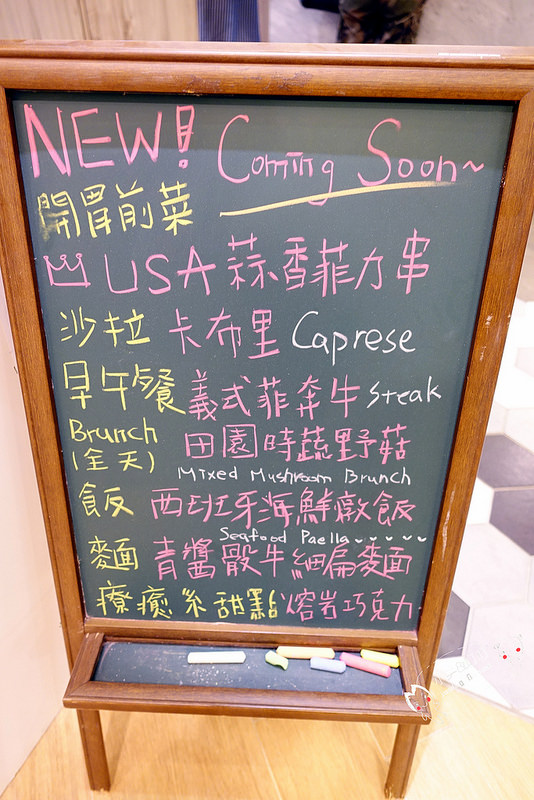 NEW! Coming Soon~
開胃前菜
USA 蒜香菲力串
沙拉 卡布里 Caprese
早午餐 義式菲奔牛 Steak
Brunch 田園時蔬野菇
(全天) Mixed Mushroom Brunch
飯 西班牙海鮮燉飯
Seafood Paella
麵 青醬骰牛細扁麵
療癒系甜點 熔岩巧克力